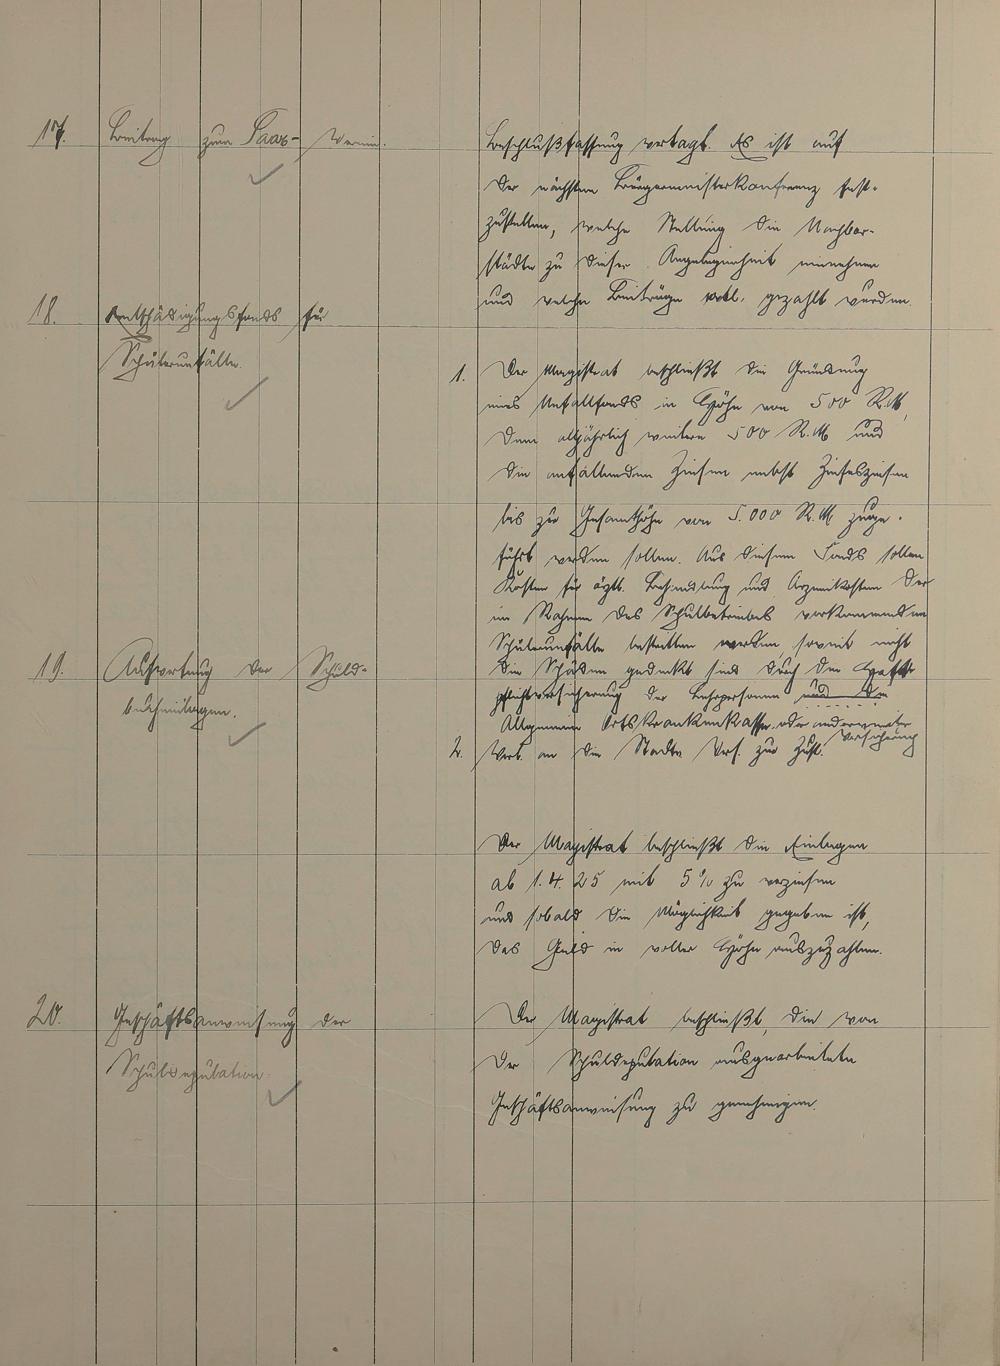 17. Beitrag zum Saar-Verein.
Beschlußfassung vertagt. Es ist auf
der nächsten Bürgermeisterkonferenz fest-
zustellen, welche Stellung die Nachbar-
städte zu dieser Angelegenheit einnehmen
und welche Beiträge evtl. gezahlt werden.
18. Entschädigungsfonds für
Schülerunfälle.
1. Der Magistrat beschließt die Gründung
eines Unfallfonds in Höhe von 500 R.M,
dem alljährlich weitere 500 R.M und
die anfallenden Zinsen nebst Zinseszinsen
bis zur Gesamthöhe von 5.000 R.M zuge-
führt werden sollen. Aus diesem Fonds sollen
Kosten für ärztl. Behandlung und Arzneikosten der
im Rahmen des Schulbetriebes vorkommenden
Schülerunfälle bestritten werden, soweit nicht
die Schäden gedeckt sind durch den Haft-
pflichtversicherung der Lehrpersonen und die
Allgemeine Ortskrankenkasse oder anderweite
Versicherung
2. Vert. an die Stadtv. Vers. zur Zust.
19. Aufwertung der Schuld-
bucheinlagen.
Der Magistrat beschließt die Einlagen
ab 1.4.25 mit 5% zu verzinsen
und sobald die Möglichkeit gegeben ist,
das Geld in voller Höhe auszuzahlen.
20. Geschäftsanweisung der
Schuldeputation.
Der Magistrat beschließt, die von
der Schuldeputation ausgearbeitete
Geschäftsanweisung zu genehmigen.